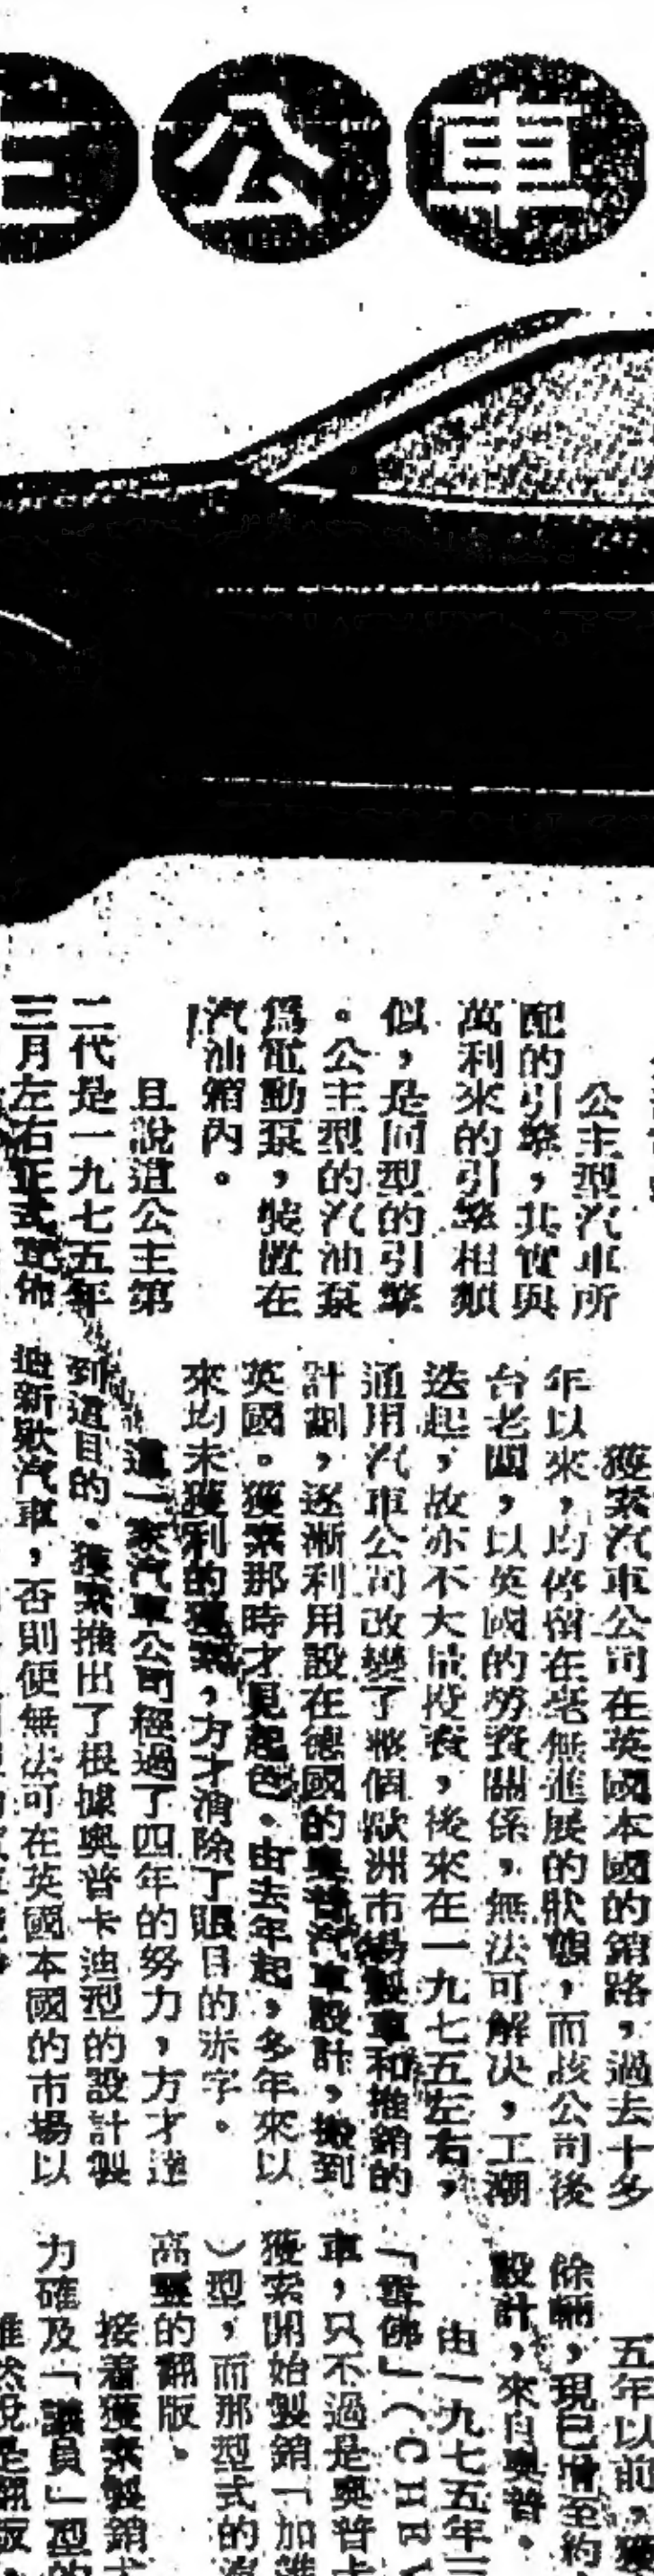 車公主
公主型汽車所
配的引擎，其實與
萬利來的引擎相類
似，是同型的引擎
。公主型的汽油泵
爲電動泵，裝置在
汽油箱內。
且說這公主第
二代是一九七五年
三月左右正式宣佈
獲素汽車公司在英國本國的銷路，過去十多
年以來，均停留在毫無進展的狀態，而該公司後
台老闆，以英國的勞資關係，無法可解决，工潮
迭起，故亦不大量投資，後來在一九七五左右，
通用汽車公司改變了整個歐洲市場製車和推銷的
計劃，逐漸利用設在德國的奧普汽車設計，搬到
英國。獲素那時才見起色。由去年起，多年來以
來均未獲利的獲素，方才消除了賬目的赤字。
這一家汽車公司經過了四年的努力，方才達
到這目的。獲素推出了根據奧普卡迪型的設計製
造新欵汽車，否則便無法可在英國本國的市場以
五年以前，獲
餘輛，現已增至約
設計，來自奧普。
由一九七五年三
「雪佛」（CHEV
車，只不過是奧普卡
獲素開始製銷「加
）型，而那型式的汽
高豎的翻版。
接着獲素製銷
力確及「議員」型的
雖然說是翻版，